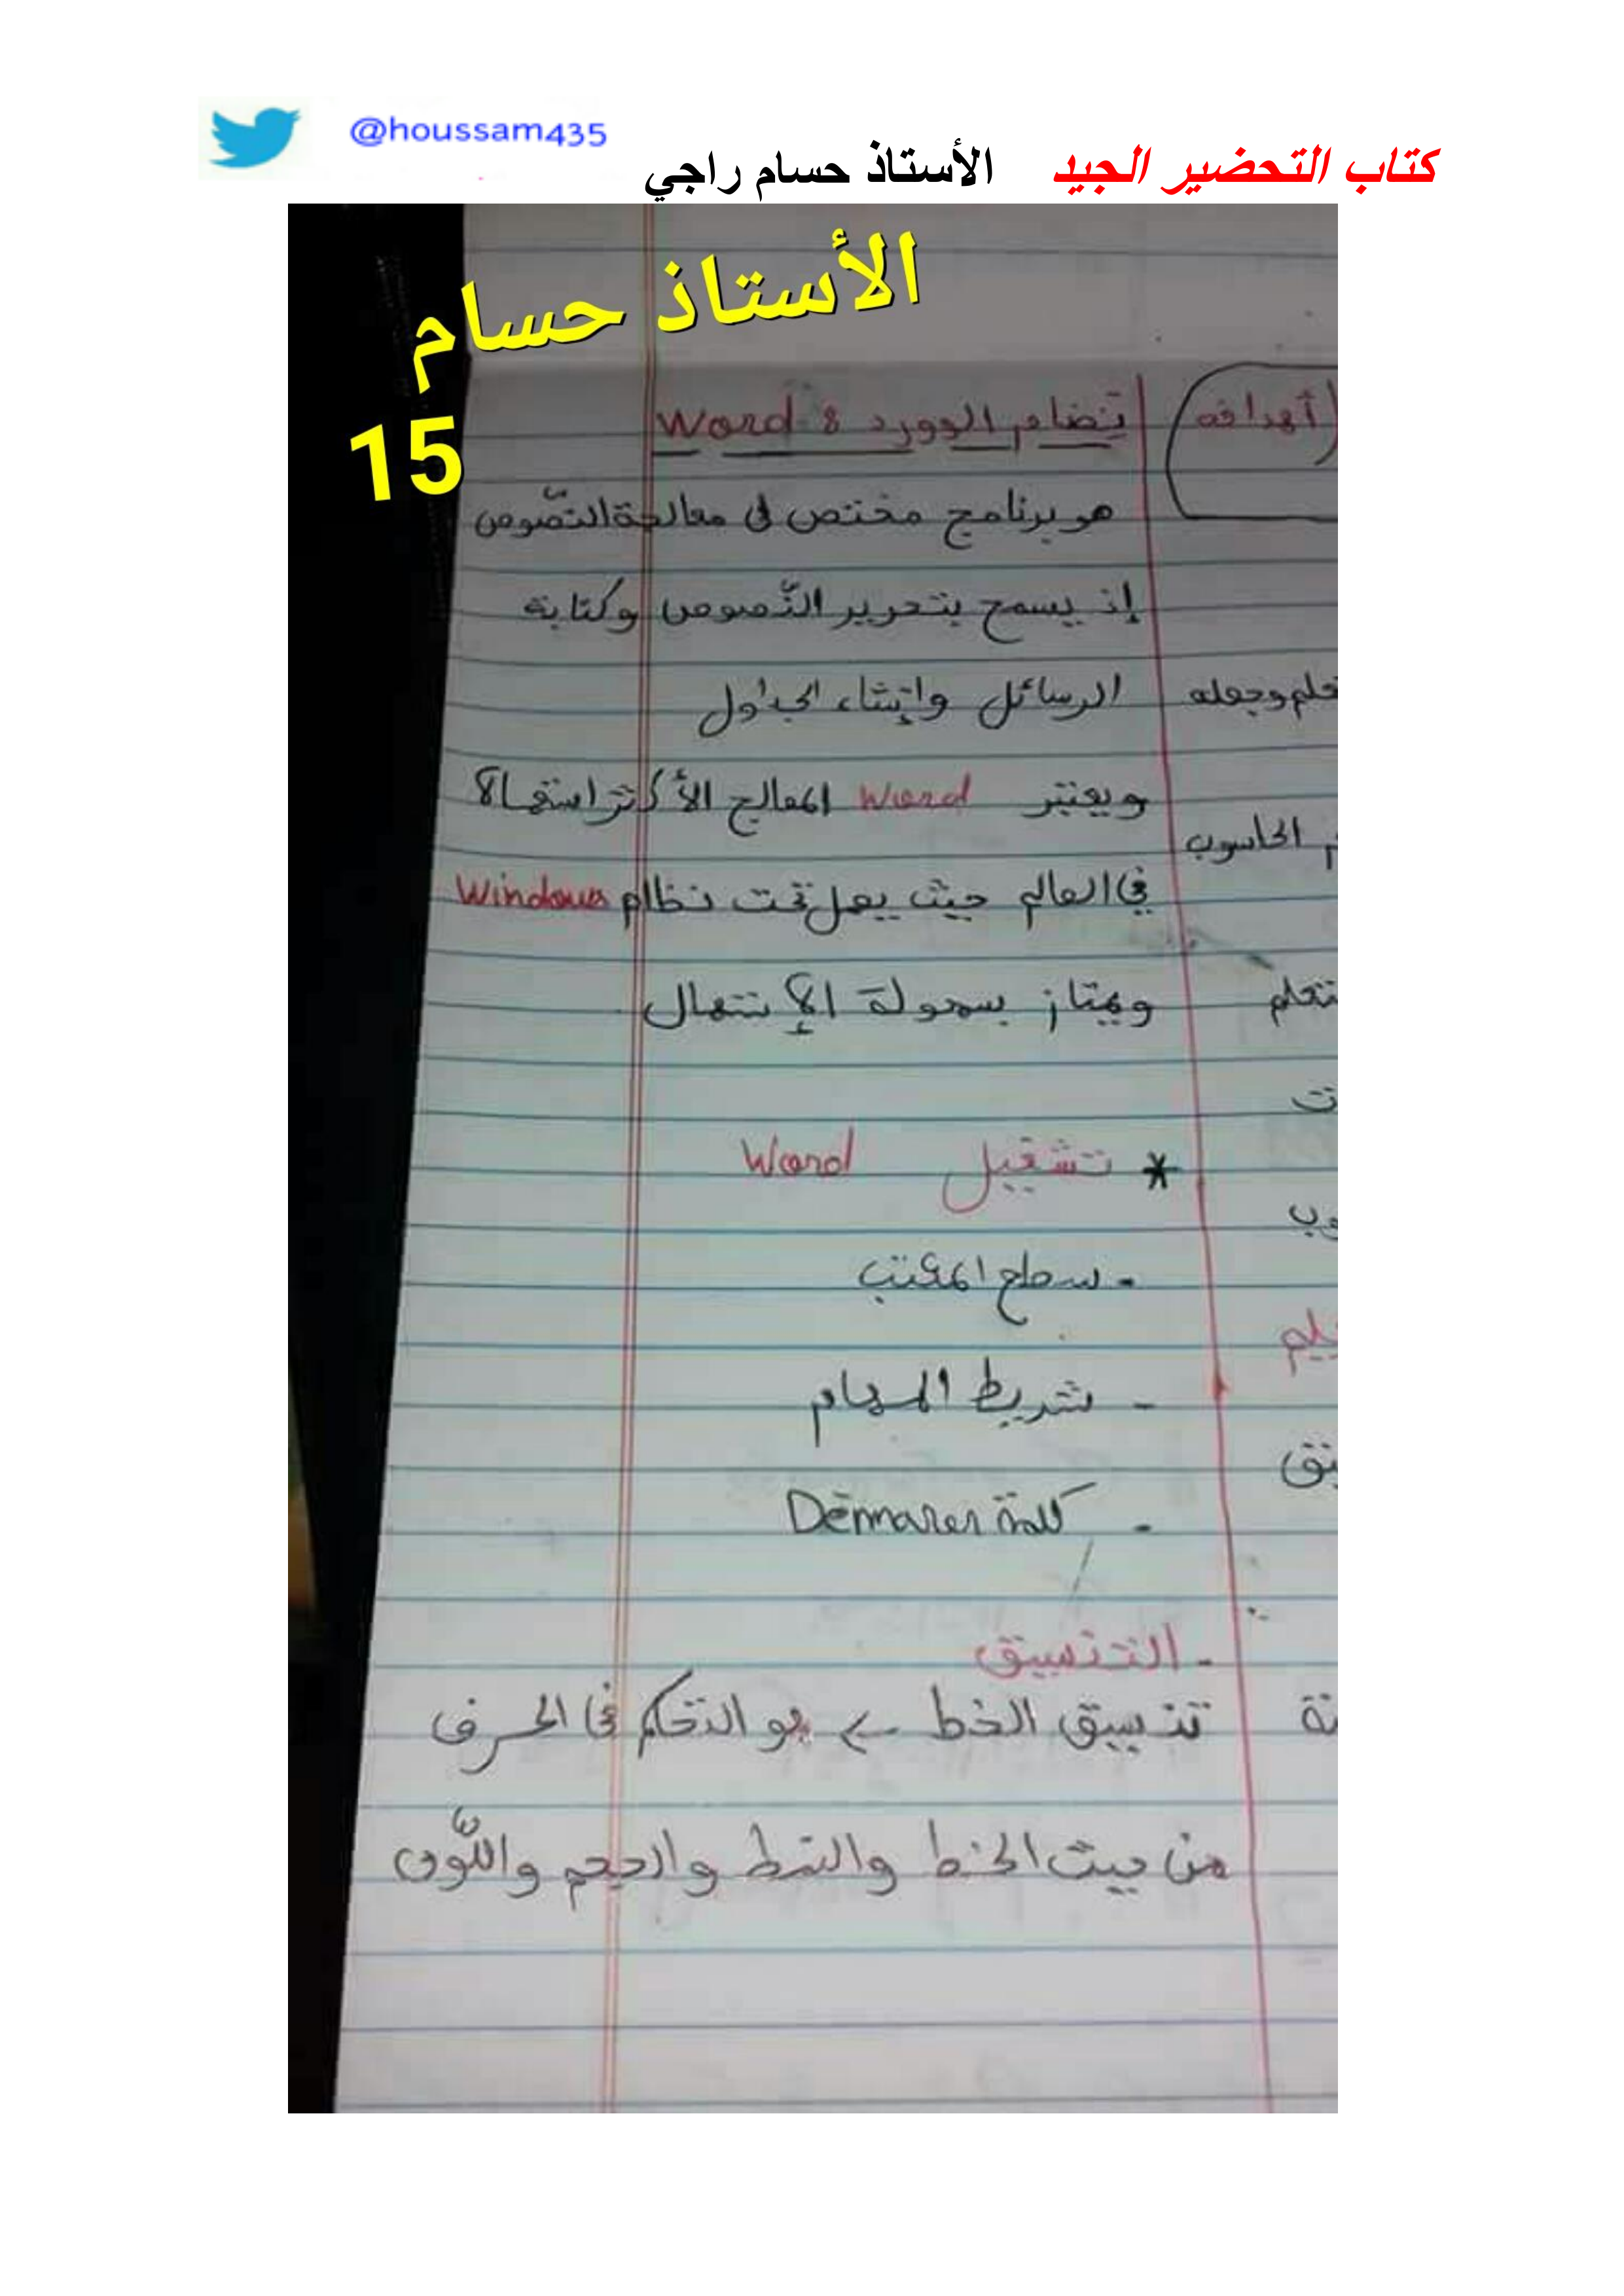 @houssam435
كتاب التحضير الجيد الأستاذ حسام راجي
الأستاذ حسام
15
أهدافه
تنضام الوورد : Word
هو برنامج مختص في معالجة النصّوص
إذ يسمح بتحرير النّصوص وكتابة
الرسائل وإنشاء الجداول
ويعتبر Word المعالج الأكثر استعمالا
في العالم حيث يعمل تحت نظام Windows
ويمتاز بسهولة الإستعمال
* تشغيل Word
- سطح المكتب
- شريط المهام
- كلمة Démarer
- التنسيق
تنسيق الخط ← هو التحكم في الحرف
من حيث الخط والنمط والحجم واللّون
علم وجعله
م الحاسوب
تعلم
ات
وب